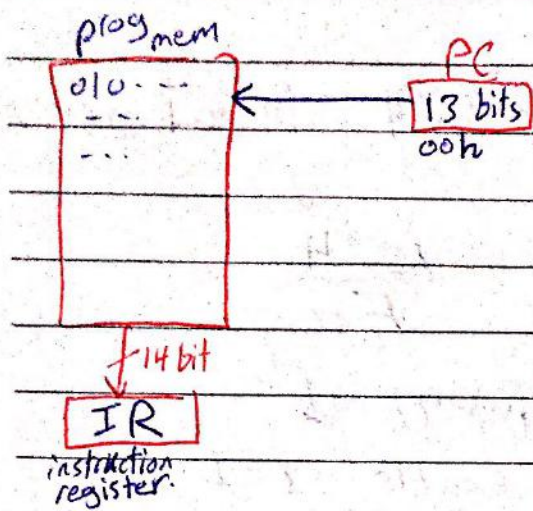 prog mem
PC
010 - - -
13 bits
- - .
00h
- - . .
14 bit
IR
instruction
register.